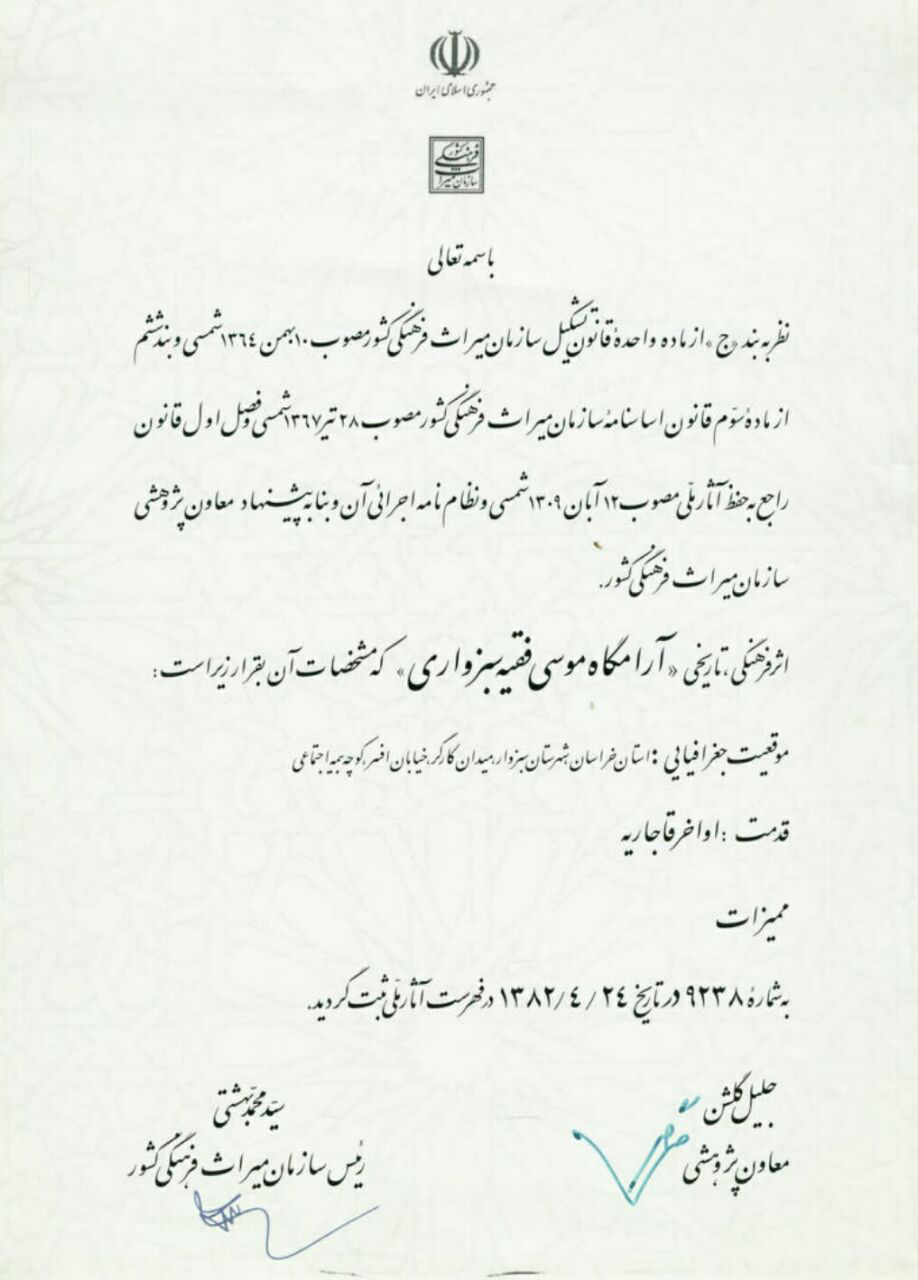 جمهوری اسلامی ایران
سازمان میراث فرهنگی کشور
باسمه تعالی
نظر به بند «ج» از ماده واحدهٔ قانون تشکیل سازمان میراث فرهنگی کشور مصوب ۱۰ بهمن ۱۳۶۴ شمسی و بند ششم
از مادهٔ سوّم قانون اساسنامهٔ سازمان میراث فرهنگی کشور مصوب ۲۸ تیر ۱۳۶۷ شمسی و فصل اول قانون
راجع به حفظ آثار ملّی مصوب ۱۲ آبان ۱۳۰۹ شمسی و نظام نامه اجرائی آن و بنا به پیشنهاد معاون پژوهشی
سازمان میراث فرهنگی کشور.
اثر فرهنگی، تاریخی «آرامگاه موسی فقیه سبزواری» که مشخصات آن بقرار زیر است :
موقعیت جغرافیایی : استان خراسان، شهرستان سبزوار، میدان کارگر، خیابان افسر، کوچه بیمه اجتماعی
قدمت : اواخر قاجاریه
ممیزات
به شمارهٔ ۹۲۳۸ در تاریخ ۲۴ / ۴ / ۱۳۸۲ در فهرست آثار ملّی ثبت گردید.
جلیل گلشن
معاون پژوهشی
سیّد محمّد بهشتی
رئیس سازمان میراث فرهنگی کشور